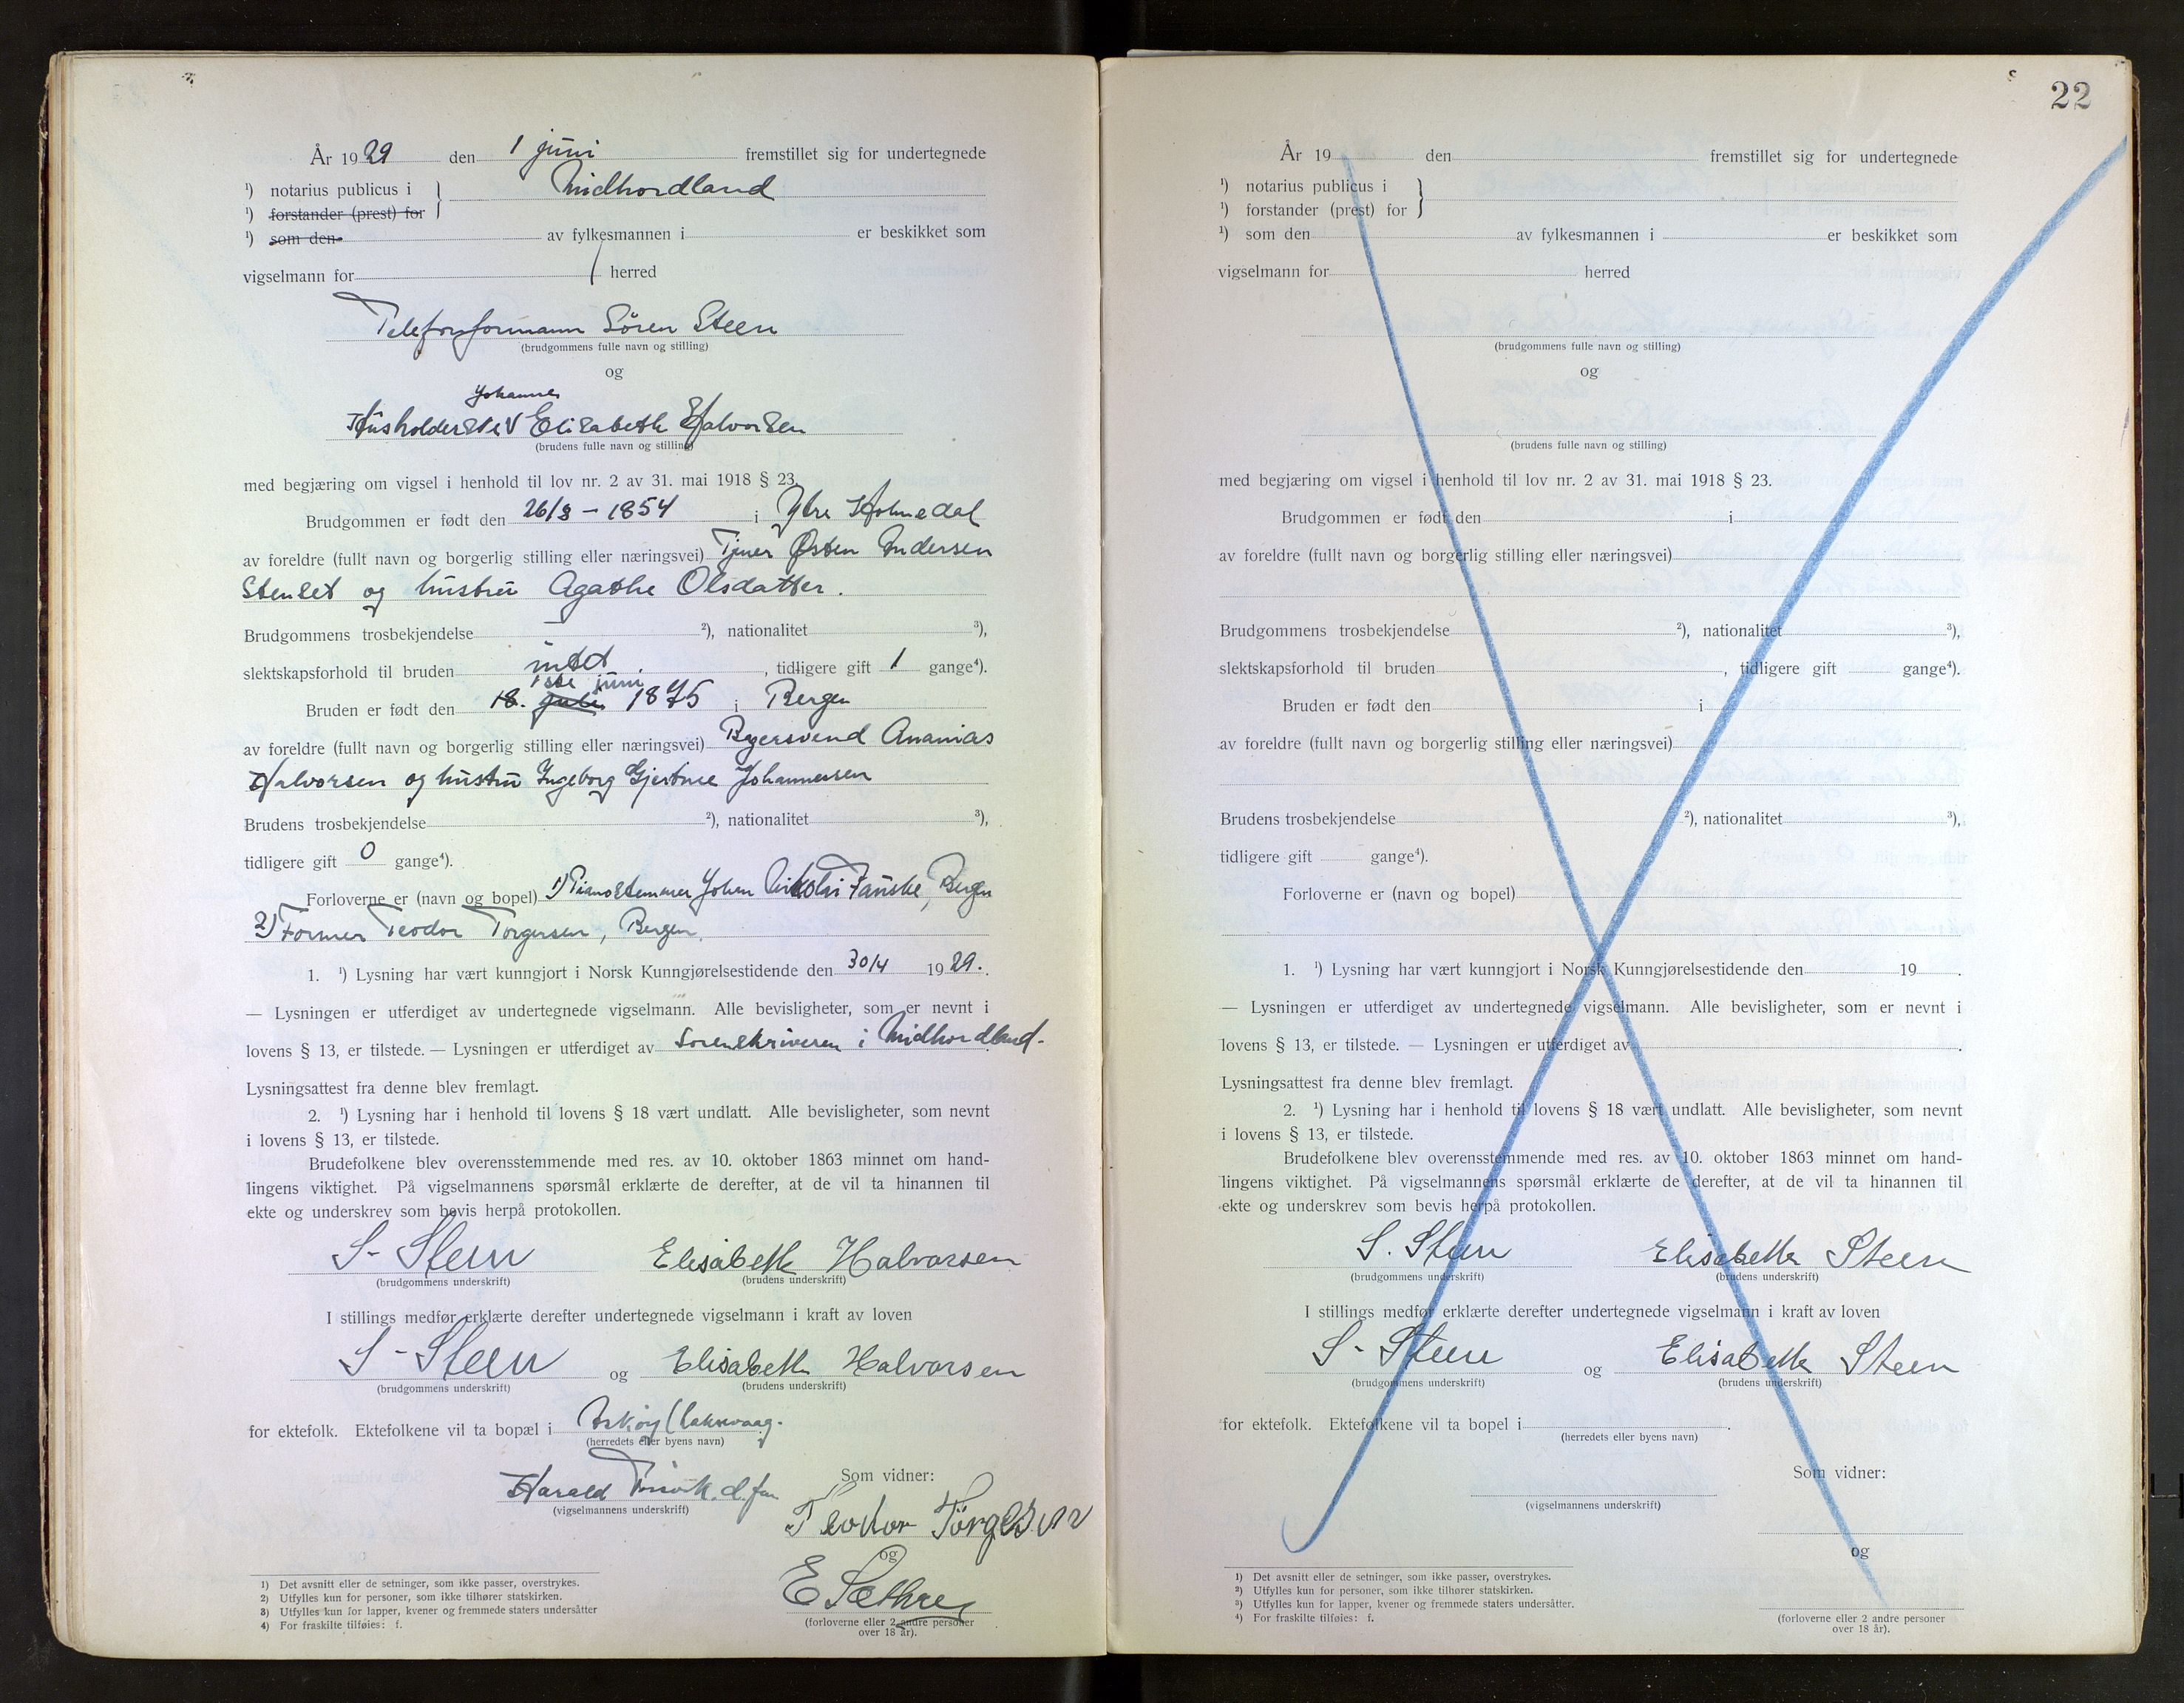 År 1929 den 1 juni fremstillet sig for undertegnede
¹) notarius publicus i } Midhordland
¹) forstander (prest) for
¹) som den av fylkesmannen i er beskikket som
vigselmann for herred
Telefonformann Sören Steen
(brudgommens fulle navn og stilling)
og
Johanne
Husholderske V Elisabeth Halvorsen
(brudens fulle navn og stilling)
med begjæring om vigsel i henhold til lov nr. 2 av 31. mai 1918 § 23.
Brudgommen er født den 26/8 - 1854 i Ytre Holmedal
av foreldre (fullt navn og borgerlig stilling eller næringsvei) Tjener Østen Andersen
Stenset og hustru Agathe Olsdatter.
Brudgommens trosbekjendelse ²), nationalitet ³),
slektskapsforhold til bruden intet. , tidligere gift 1 gange⁴).
1ste juni
Bruden er født den 18. 1875 i Bergen
av foreldre (fullt navn og borgerlig stilling eller næringsvei) Bagersvend Ananias
Halvorsen og hustru Ingeborg Gjertine Johannessen
Brudens trosbekjendelse ²), nationalitet ³),
tidligere gift 0 gange⁴).
Forloverne er (navn og bopel) 1) Pianostemmer Johan Nikolai Fauske, Bergen
2) Former Teodor Torgersen, Bergen.
1. ¹) Lysning har vært kunngjort i Norsk Kunngjørelsestidende den 30/4 1929.
— Lysningen er utferdiget av undertegnede vigselmann. Alle bevisligheter, som er nevnt i
lovens § 13, er tilstede. — Lysningen er utferdiget av Sorenskriveren i Midhordland.
Lysningsattest fra denne blev fremlagt.
2. ¹) Lysning har i henhold til lovens § 18 vært undlatt. Alle bevisligheter, som nevnt
i lovens § 13, er tilstede.
Brudefolkene blev overensstemmende med res. av 10. oktober 1863 minnet om hand-
lingens viktighet. På vigselmannens spørsmål erklærte de derefter, at de vil ta hinannen til
ekte og underskrev som bevis herpå protokollen.
S- Steen Elisabeth Halvorsen
(brudgommens underskrift) (brudens underskrift)
I stillings medfør erklærte derefter undertegnede vigselmann i kraft av loven
S- Steen og Elisabeth Halvorsen
(brudgommens underskrift) (brudens underskrift)
for ektefolk. Ektefolkene vil ta bopæl i Askøy (Laksevaag.
(herredets eller byens navn)
Som vidner:
Harald d. fm
(vigselmannens underskrift)
Teodor Torgersen
og
E Sæthre
(forloverne eller 2 andre personer
over 18 år).
1) Det avsnitt eller de setninger, som ikke passer, overstrykes.
2) Utfylles kun for personer, som ikke tilhører statskirken.
3) Utfylles kun for lapper, kvener og fremmede staters undersåtter
4) For fraskilte tilføies: f.
22
År 19 den fremstillet sig for undertegnede
¹) notarius publicus i }
¹) forstander (prest) for
¹) som den av fylkesmannen i er beskikket som
vigselmann for herred
(brudgommens fulle navn og stilling)
og
(brudens fulle navn og stilling)
med begjæring om vigsel i henhold til lov nr. 2 av 31. mai 1918 § 23.
Brudgommen er født den i
av foreldre (fullt navn og borgerlig stilling eller næringsvei)
Brudgommens trosbekjendelse ²), nationalitet ³),
slektskapsforhold til bruden , tidligere gift gange⁴).
Bruden er født den i
av foreldre (fullt navn og borgerlig stilling eller næringsvei)
Brudens trosbekjendelse ²), nationalitet ³),
tidligere gift gange⁴).
Forloverne er (navn og bopel)
1. ¹) Lysning har vært kunngjort i Norsk Kunngjørelsestidende den 19 .
— Lysningen er utferdiget av undertegnede vigselmann. Alle bevisligheter, som er nevnt i
lovens § 13, er tilstede. — Lysningen er utferdiget av .
Lysningsattest fra denne blev fremlagt.
2. ¹) Lysning har i henhold til lovens § 18 vært undlatt. Alle bevisligheter, som nevnt
i lovens § 13, er tilstede.
Brudefolkene blev overensstemmende med res. av 10. oktober 1863 minnet om hand-
lingens viktighet. På vigselmannens spørsmål erklærte de derefter, at de vil ta hinannen til
ekte og underskrev som bevis herpå protokollen.
S. Steen Elisabeth Steen
(brudgommens underskrift) (brudens underskrift)
I stillings medfør erklærte derefter undertegnede vigselmann i kraft av loven
S- Steen og Elisabeth Steen
(brudgommens underskrift) (brudens underskrift)
for ektefolk. Ektefolkene vil ta bopel i .
(herredets eller byens navn)
Som vidner:
(vigselmannens underskrift)
og
(forloverne eller 2 andre personer
over 18 år).
1) Det avsnitt eller de setninger, som ikke passer, overstrykes.
2) Utfylles kun for personer, som ikke tilhører statskirken.
3) Utfylles kun for lapper, kvener og fremmede staters undersåtter.
4) For fraskilte tilføies: f.